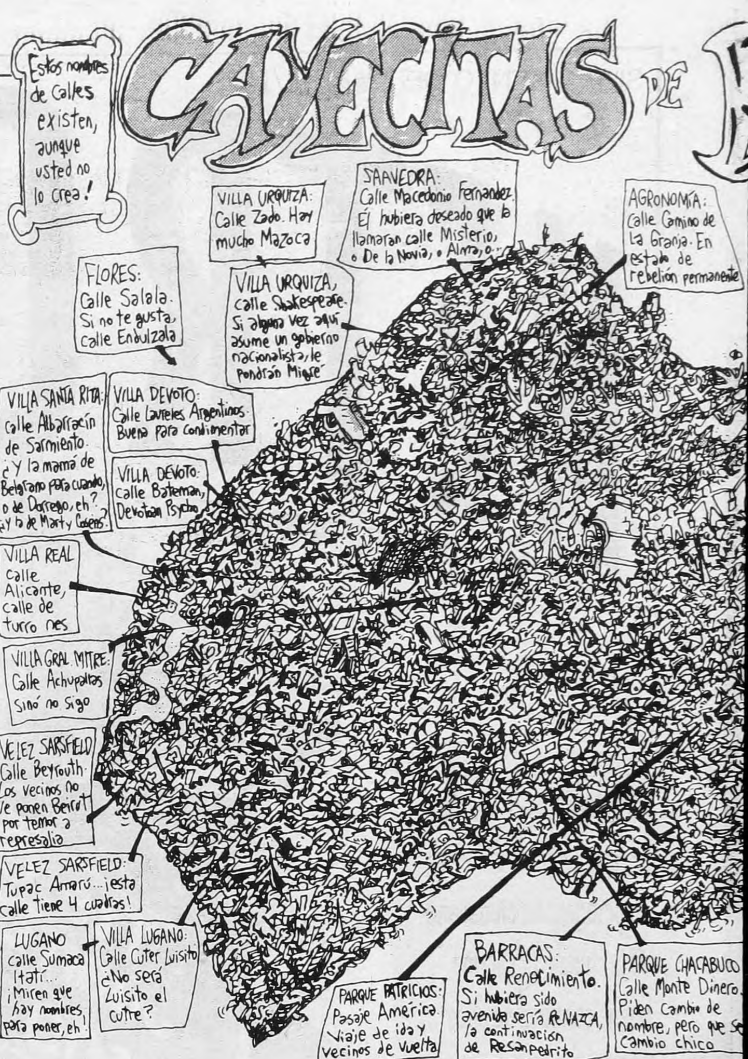 Estos nombres
de calles
existen,
aunque
usted no
lo crea!
CAYECITAS DE
VILLA URQUIZA:
Calle Zado. Hay
mucho Mazoca
SAAVEDRA:
Calle Macedonio Fernandez.
Él hubiera deseado que la
llamaran calle Misterio,
o De la Novia, o Alma, o...
AGRONOMÍA:
Calle Camino de
La Granja. En
estado de
rebelion permanente
FLORES:
Calle Salala.
Si no te gusta,
Calle Endulzala
VILLA URQUIZA,
calle Shakespeare.
Si alguna vez aquí
asume un gobierno
nacionalista, le
pondrán Migré
VILLA SANTA RITA:
calle Albarracín
de Sarmiento.
¿Y la mamá de
Belgrano para cuando,
o de Dorrego, eh?
¿y la de Mart y
VILLA DEVOTO:
Calle Laureles Argentinos.
Buena para condimentar
VILLA DEVOTO:
calle Bateman,
Devotian Psycho
VILLA REAL
calle
Alicante,
calle de
turro nes
VILLA GRAL MITRE:
Calle Achupallas
Sinó no sigo
VELEZ SARSFIELD
Calle Beyrouth.
Los vecinos no
le ponen Beirut
por temor a
represalia
VELEZ SARSFIELD:
Tupac Amarú...¡esta
calle tiene 4 cuadras!
LUGANO
calle Sumaca
Itatí...
¡Miren que
hay nombres
para poner, eh!
VILLA LUGANO:
Calle Cuter Luisito
¿No será
Luisito el
cutre?
PARQUE PATRICIOS:
Pasaje América.
Viaje de ida y
vecinos de vuelta
BARRACAS:
Calle Renacimiento.
Si hubiera sido
avenida sería ReNAZCA,
la continuación
de Resanpedrito
PARQUE CHACABUCO
Calle Monte Dinero.
Piden cambio de
nombre, pero que se
cambio chico